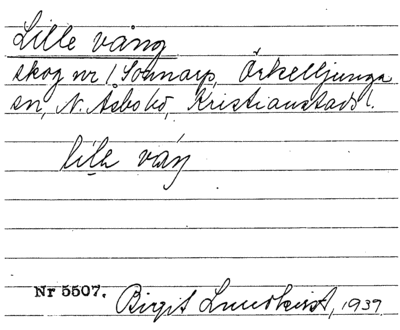 Lille vång
skog nr 1 Sonnarp, Örkelljunga
sn, N. Åsbo hd, Kristianstads l.
lila váŋ
Nr 5507. Birgit Lundkvist, 1937